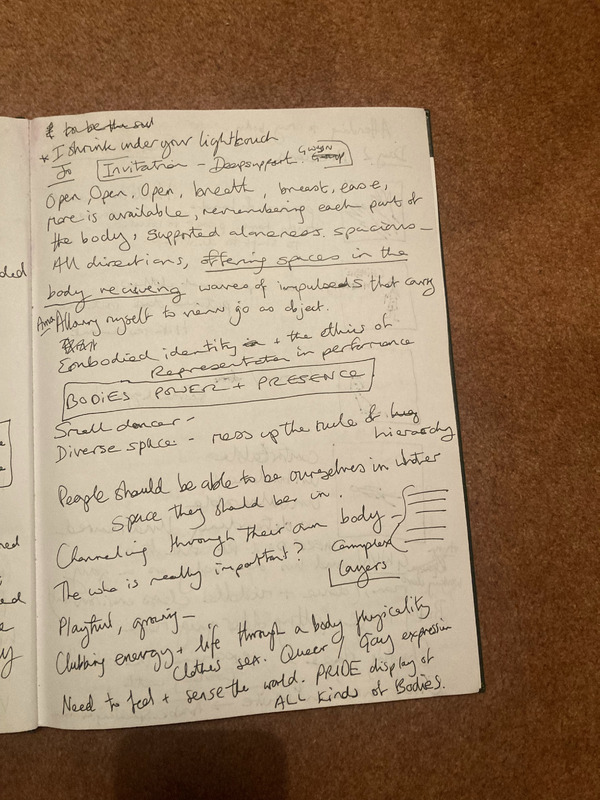 to be the soul
* I shrink under your light touch
Jo Invitation - Deepsupport. Gwyn
Open, Open, Open, breath, breast, ease,
more is available, remembering each part of
the body, supported aloneness. spacious -
All directions, offering spaces in the
body reciving waves of impulses that carry
Ama Allowing myself to view go as object.
Embodied identity + the ethics of
Representation in performance
BODIES POWER + PRESENCE
Small dancer -
Diverse space - mess up the rule of
hierarchy
People should be able to be ourselves in whatever
space they should be in.
Channeling through their own body -
The who is really important? Complex
Layers
Playful, growing -
Clubbing energy + life through a body physicality
Clothes sex. Queer / Gay expression
Need to feel + sense the world. PRIDE display of
ALL kinds of Bodies.
ded
ned
ed